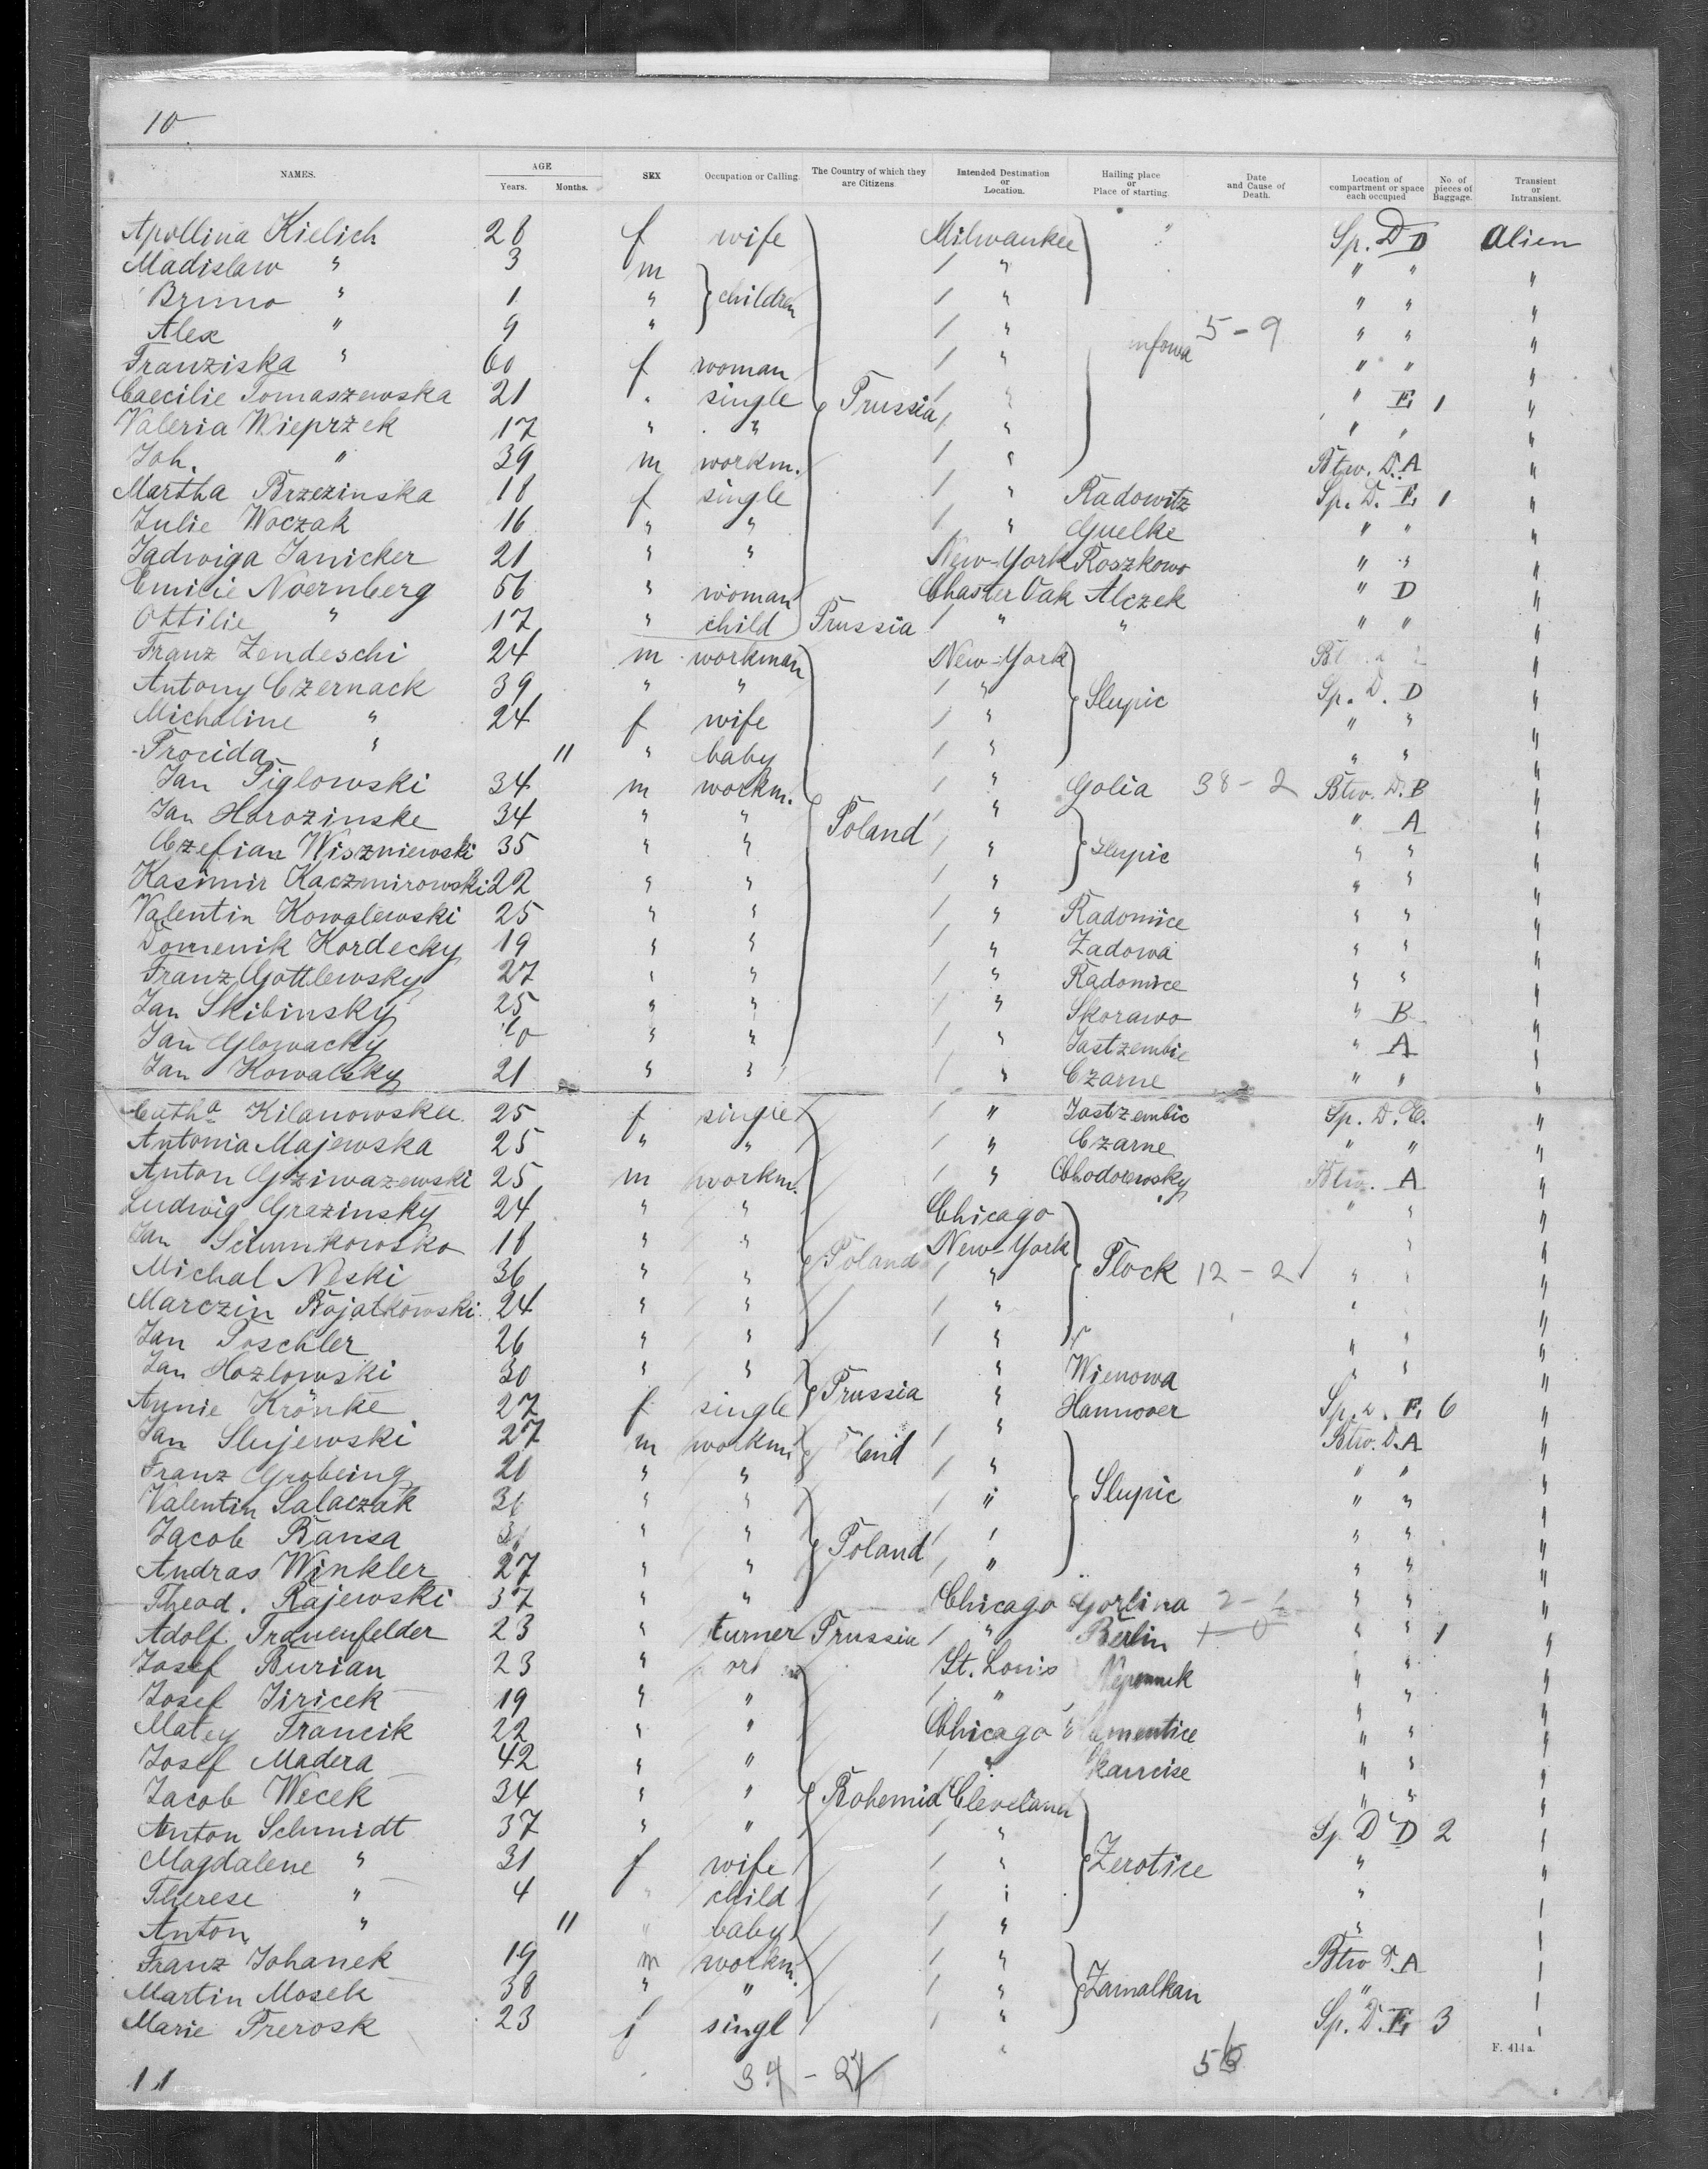 10
NAMES. AGE Years. Months. SEX Occupation or Calling. The Country of which they are Citizens. Intended Destination or Location. Hailing place or Place of starting. Date and Cause of Death. Location of compartment or space each occupied No. of pieces of Baggage. Transient or Intransient.
Apollina Kielich 28 f wife Milwaukee " Sp. D D Alien
Madislaw " 3 m / " " " "
Bruno " 1 " children / " " " "
Alex " 9 " / " 5-9 " " "
Franziska " 60 f woman / " " " "
Caecilie Tomaszewska 21 " single Prussia / " " E, 1 "
Valeria Wieprzek 17 " " / " " " "
Joh. " 39 m workm. / " Btw. D. A "
Martha Brzezinska 18 f single / " Radowitz Sp. D. E, 1 "
Julie Woczak 16 " " / " Guelke " " "
Jadwiga Janicker 21 " " New-York Roszkowo " " "
Emilie Noernberg 56 " woman Chaster Oak Alczek " D "
Ottilie " 17 " child Prussia / " " " " "
Franz Zendeschi 24 m workman New-York "
Antony Czernack 39 " " / " Slupic Sp. D. D "
Michaline " 24 f wife / " " " "
Procida " 11 " baby / " " " "
Jan Piglowski 34 m workm. " Golia 38-2 Btw. D. B "
Jan Horozinske 34 " " Poland / " " A "
Czefian Wiszniewski 35 " " / " Slupic " " "
Kasimir Kaczmirowski 22 " " / " " " "
Valentin Kowalewski 25 " " / " Radomice " " "
Domenik Kordecky 19 " " / " Zadowa " " "
Franz Gottlewsky 27 " " / " Radomice " " "
Jan Skibinsky 25 " " / " Skorawo " B "
Jan Glowacky " " / " Jastzembie " A "
Jan Kowalsky 21 " " / " Czarne " " "
Cath<sup>a</sup> Kilanowska 25 f single / " Jastzembie Sp. D. E. "
Antonia Majewska 25 " " / " Czarne " " "
Anton Gziwazewski 25 m workm. / " Chodorewsky Btw. A "
Ludwig Grazinsky 24 " " Chicago " " "
Jan Scinnkowsko 18 " " Poland New-York " "
Michal Neski 36 " " / " Plock 12-21 " " "
Marczin Bojatkowski 24 " " / " " "
Jan Poschler 26 " " / " " " "
Jan Hozlowski 30 " " " Wienowa " " "
Annie Krönke 27 f single Prussia " Hannover Sp. D. E, 6 "
Jan Slujewski 27 m workm. / " Btw. D. A "
Franz Grobeing 21 " " / " Slupic " " "
Valentin Salaczak 36 " " / " " " "
Jacob Bansa " " Poland / " " " "
Andras Winkler 27 " " / " " " "
Theod. Rajewski 37 " " Chicago Gorlina " " "
Adolf Frauenfelder 23 " turner Prussia / " Berlin " " 1 "
Josef Burian 23 " St. Louis " " "
Josef Jiricek 19 " " / " " " "
Matey Francik 22 " " Chicago " " "
Josef Madera 42 " " / " " " "
Jacob Wecek 34 " " Bohemia Cleveland " " "
Anton Schmidt 37 " " / " Sp. D D 2 "
Magdalene " 31 f wife / " Zerotice " "
Therese " 4 " child / " "
Anton " 11 " baby / " "
Franz Johanek 19 m workm. / " Btw D. A
Martin Mosek 38 " " / " Zamalkan "
Marie Prerosk 23 f singl / " Sp. D. E, 3
F. 414a.
11